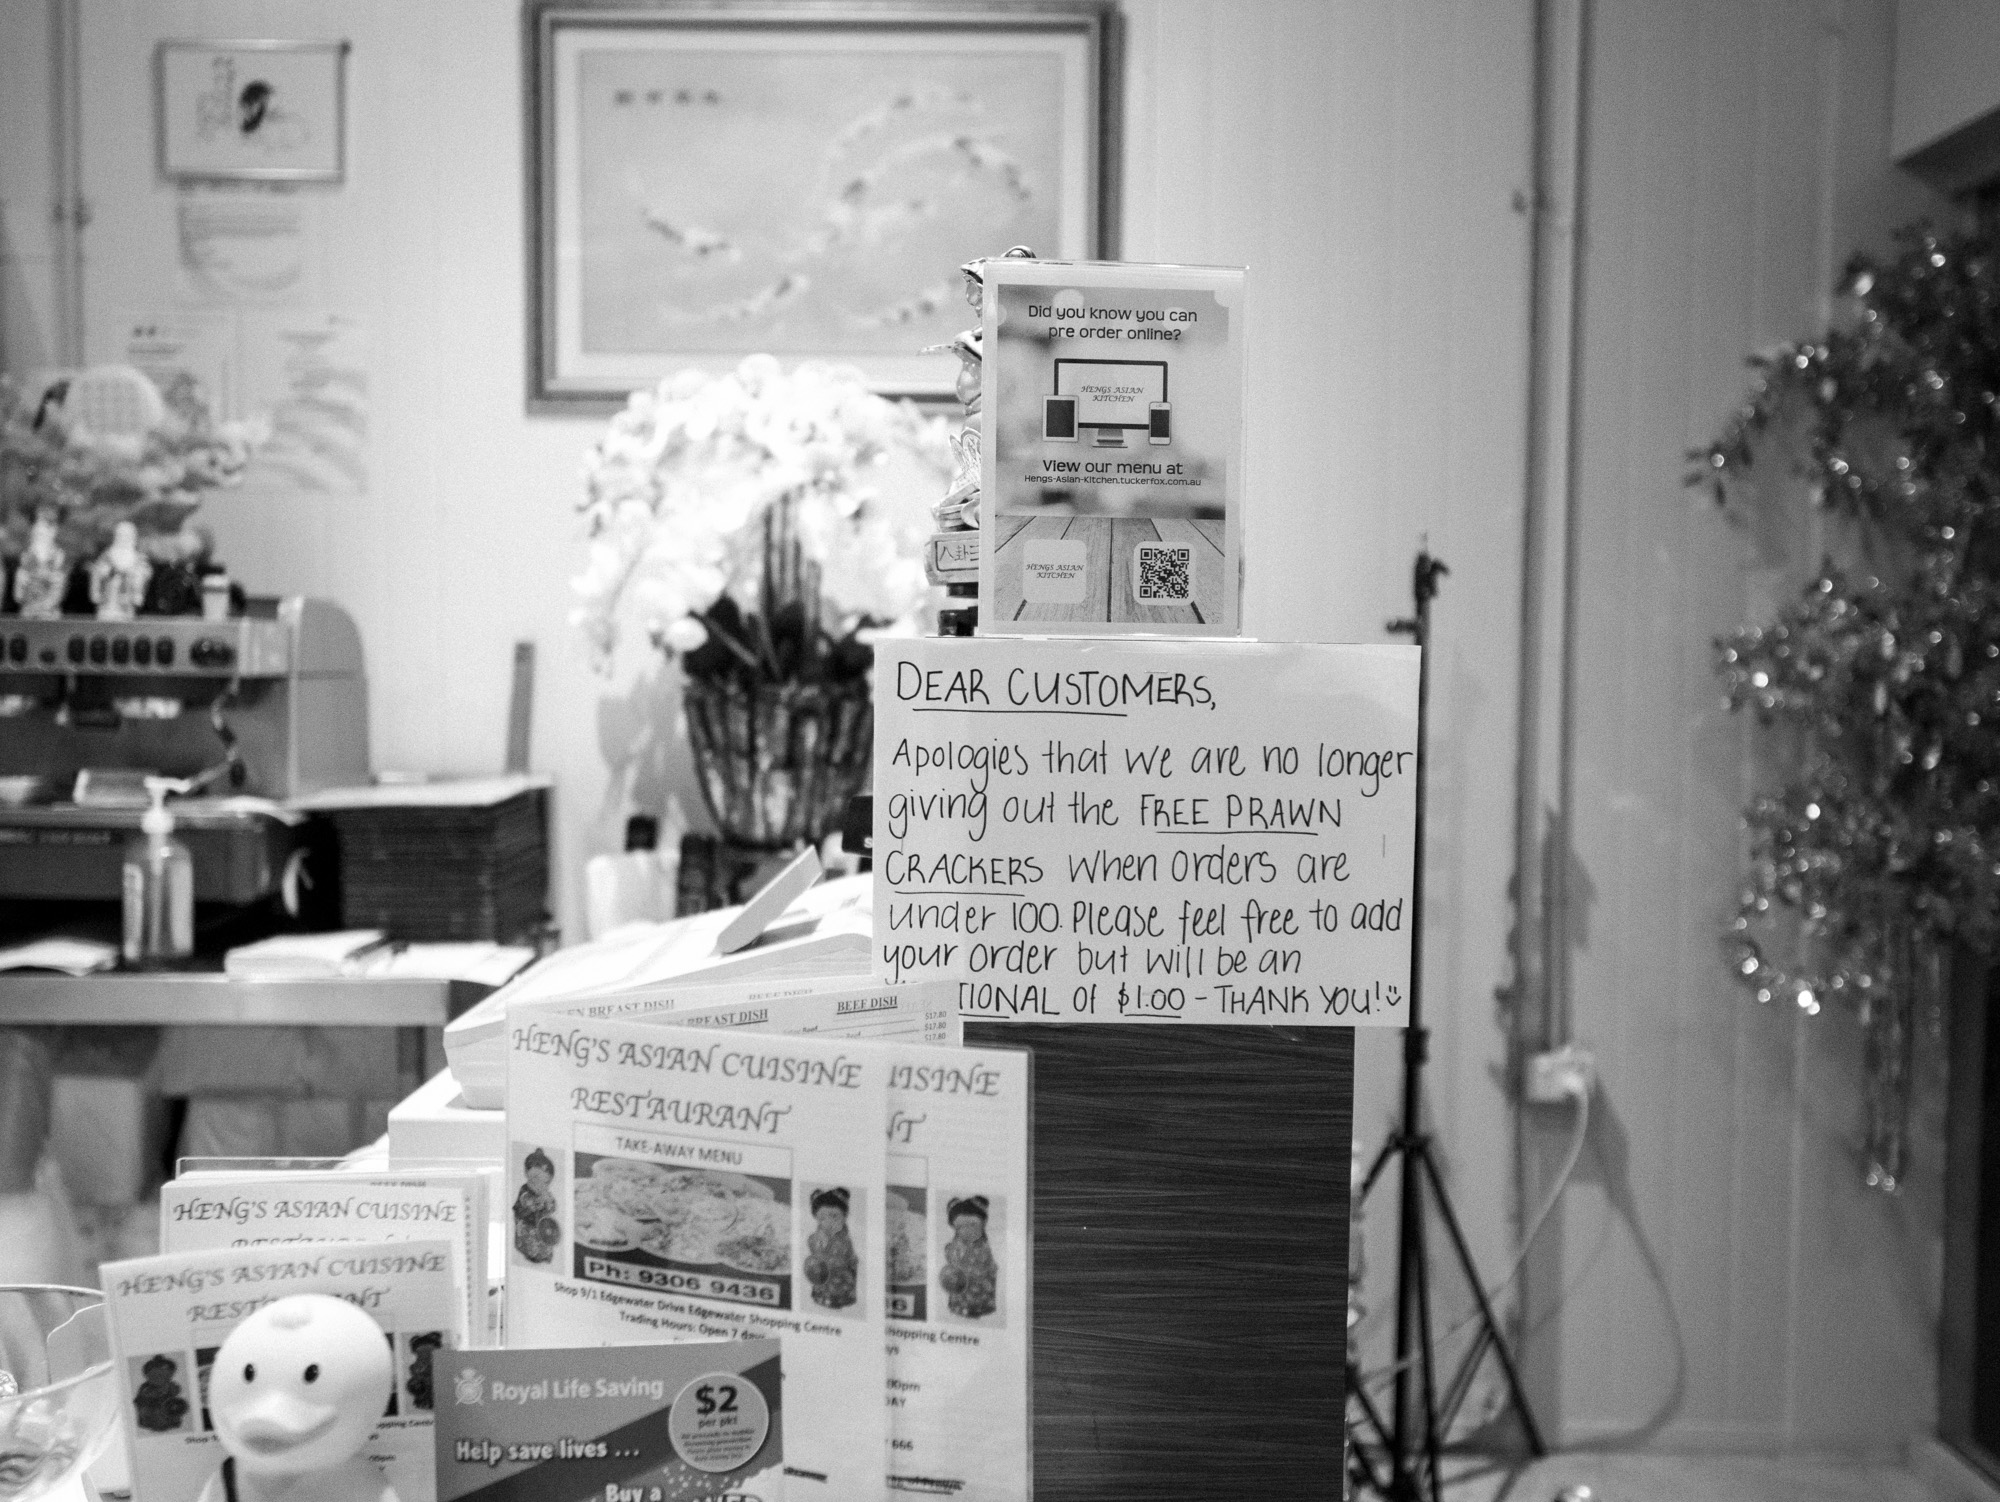 Did you know you can
pre order online?
HENGS ASIAN
KITCHEN
View our menu at
Hengs-Asian-Kitchen.tuckerfox.com.au
HENGS ASIAN
KITCHEN
八卦
DEAR CUSTOMERS,
Apologies that we are no longer
giving out the FREE PRAWN
CRACKERS when orders are
under 100. Please feel free to add
your order but will be an
TIONAL of $1.00 - THANK YOU!
EN BREAST DISH
BREAST DISH
BEEF DISH
$17.80
$17.80
$17.80
HENG'S ASIAN CUISINE
RESTAURANT
TAKE-AWAY MENU
Ph: 9306 9436
Shop 9/1 Edgewater Drive Edgewater Shopping Centre
Trading Hours: Open 7 days
UISINE
NT
opping Centre
666
HENG'S ASIAN CUISINE
HENG'S ASIAN CUISINE
RESTAURANT
Royal Life Saving
$2
per pkt
Help save lives ...
Buy a